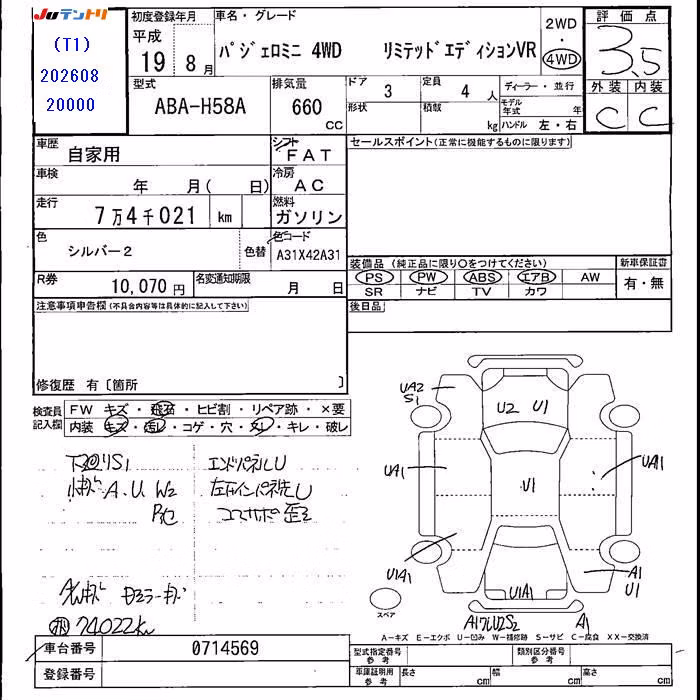 JUテントリ
(T1)
202608
20000
初度登録年月
平成
19 8月
車名・グレード
パジェロミニ 4WD リミテッドエディションVR
2WD
・
4WD
評価点
3.5
外装 内装
C C
型式
ABA-H58A
排気量
660
CC
ドア 3
形状
定員 4 人
積載 kg
ディーラー・並行
モデル年式 年
ハンドル 左・右
車歴
自家用
シフト
FAT
車検
年 月( 日)
冷房
AC
走行
7万4千021 km
燃料
ガソリン
色
シルバー2
色替
色コード
A31X42A31
R券
10,070 円
名変通知期限
月 日
セールスポイント(正常に機能するものに限ります)
装備品(純正品に限り○をつけてください)
新車保証書
PS PW ABS エアB AW
SR ナビ TV カワ
有・無
後日品
注意事項申告欄(不具合内容等は具体的に記入して下さい)
修復歴 有〔箇所 〕
検査員記入欄
FW キズ・飛石・ヒビ割・リペア跡・×要
内装 キズ・汚レ・コゲ・穴・スレ・キレ・破レ
下廻りS1
小キズ A.U W2
エンドパネルU
コアサポ歪
74022km
UA2
S1
U2 U1
UA1
UA1
U1
U1A1
U1A1
A1
U1
A1
スペア
A-キズ E-エクボ U-凹み W-補修跡 S-サビ C-腐食 XX-交換済
車台番号
0714569
登録番号
型式指定番号
参考
類別区分番号
参考
車庫証明用
参考
長さ cm
幅 cm
高さ cm